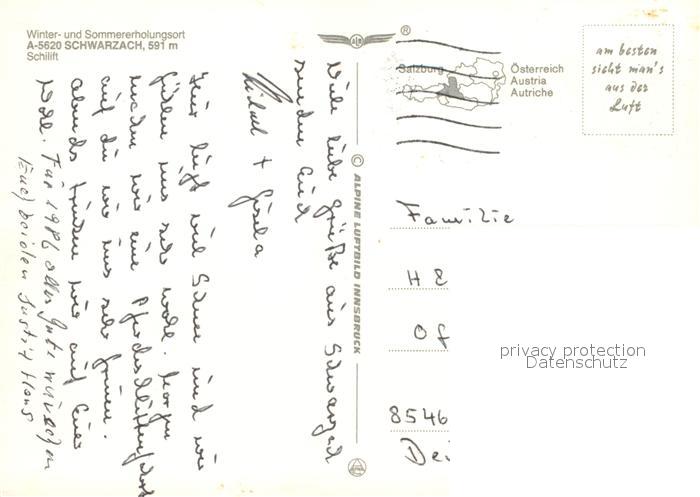 Winter- und Sommererholungsort
A-5620 SCHWARZACH, 591 m
Schilift
®
Salzburg
Österreich
Austria
Autriche
am besten
sieht man's
aus der
Luft
© ALPINE LUFTBILD INNSBRUCK
Viele liebe Grüße aus Schwarzach
senden Euch
+ Gisela
Hier liegt viel Schnee und wir
fühlen uns sehr wohl. Morgen
machen wir eine Pferdeschlittenfahrt
auf die wir uns sehr freuen.
Abends trinken wir auf Euer
Wohl. Für 1986 alles Gute wünschen
Euch beiden Hans
Familie
HE
Of
8546
Dei
privacy protection
Datenschutz